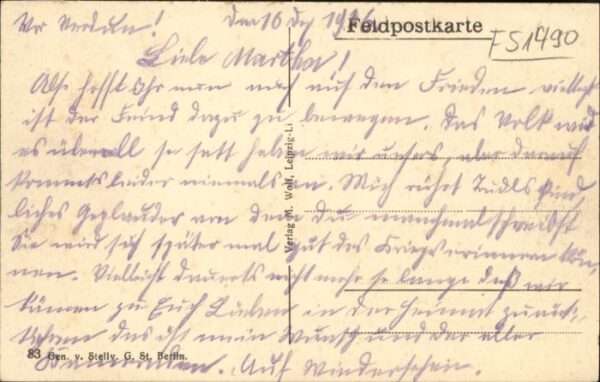 Vor Verdun! Den 16 Dez 1916
Feldpostkarte
FS1490
Liebe Martha!
Also hofft Ihr nun auch auf den Frieden vielleicht
ist der Feind dazu zu bewegen. Das Volk wird
es überall so satt haben wie unseres, aber darauf
kommts leider niemals an. Mich rührt Trudls kind
liches Geplauder von dem Du manchmal schreibst
Sie wird sich später mal gut des Krieges erinnern kön-
nen. Vielleicht dauerts nicht mehr so lange daß wir
kämen zu Euch Lieben in der Heimat zurück-
kehren das ist mein Wunsch und der aller
Kameraden. Auf Wiedersehen.
Verlag M. Wolf, Leipzig-Li
83 Gen. v. Stellv. G. St. Berlin.